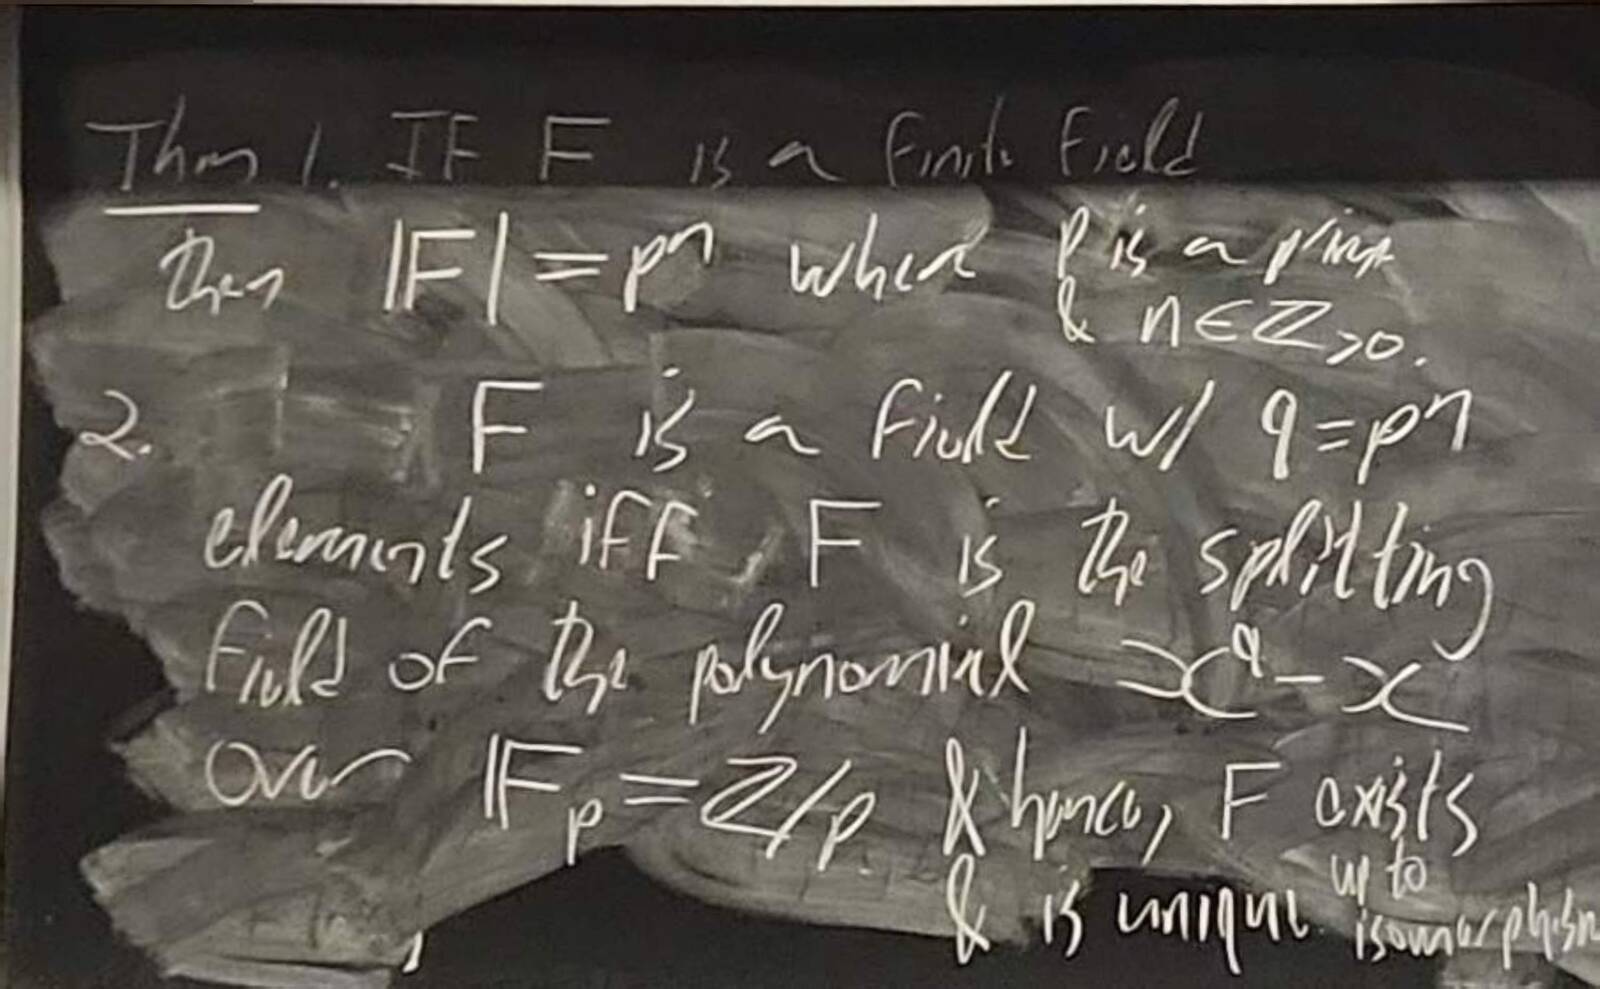 Thm 1. IF F is a finite field
then |F| = pⁿ where p is a prime
& n ∈ ℤ>0.
2. F is a field w/ q = pⁿ
elements iff F is the splitting
field of the polynomial x^q - x
over 𝔽p = ℤ/p & hence, F exists
& is unique up to
isomorphism